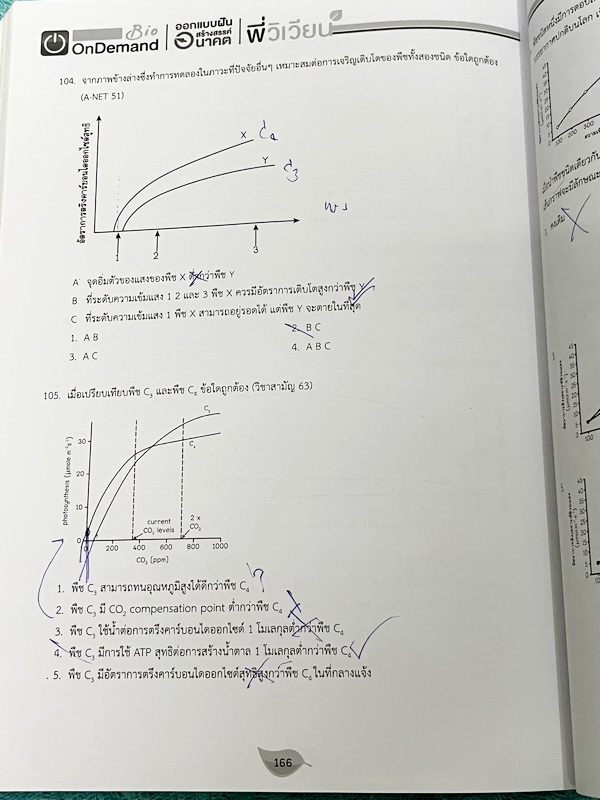 Bio
OnDemand
ออกแบบฝัน
สร้างสรรค์
อนาคต
พี่วิเวียน
104. จากภาพข้างล่างซึ่งทำการทดลองในภาวะที่ปัจจัยอื่นๆ เหมาะสมต่อการเจริญเติบโตของพืชทั้งสองชนิด ข้อใดถูกต้อง
(A-NET 51)
อัตราการตรึงคาร์บอนไดออกไซด์สุทธิ
X C4
Y C3
1 2 3
A จุดอิ่มตัวของแสงของพืช X ต่ำกว่าพืช Y
B ที่ระดับความเข้มแสง 1 2 และ 3 พืช X ควรมีอัตราการเติบโตสูงกว่าพืช Y
C ที่ระดับความเข้มแสง 1 พืช X สามารถอยู่รอดได้ แต่พืช Y จะตายในที่สุด
1. A B
2. B C
3. A C
4. A B C
105. เมื่อเปรียบเทียบพืช C3 และพืช C4 ข้อใดถูกต้อง (วิชาสามัญ 63)
photosynthesis (µmole m⁻²s⁻¹)
30
20
10
0
C3
C4
current
CO2 levels
2 x
CO2
0 200 400 600 800 1000
CO2 (ppm)
1. พืช C3 สามารถทนอุณหภูมิสูงได้ดีกว่าพืช C4
2. พืช C3 มี CO2 compensation point ต่ำกว่าพืช C4
3. พืช C3 ใช้น้ำต่อการตรึงคาร์บอนไดออกไซด์ 1 โมเลกุลต่ำกว่าพืช C4
4. พืช C3 มีการใช้ ATP สุทธิต่อการสร้างน้ำตาล 1 โมเลกุลต่ำกว่าพืช C4
5. พืช C3 มีอัตราการตรึงคาร์บอนไดออกไซด์สุทธิสูงกว่าพืช C4 ในที่กลางแจ้ง
166
100 200 300
1. คงเดิม